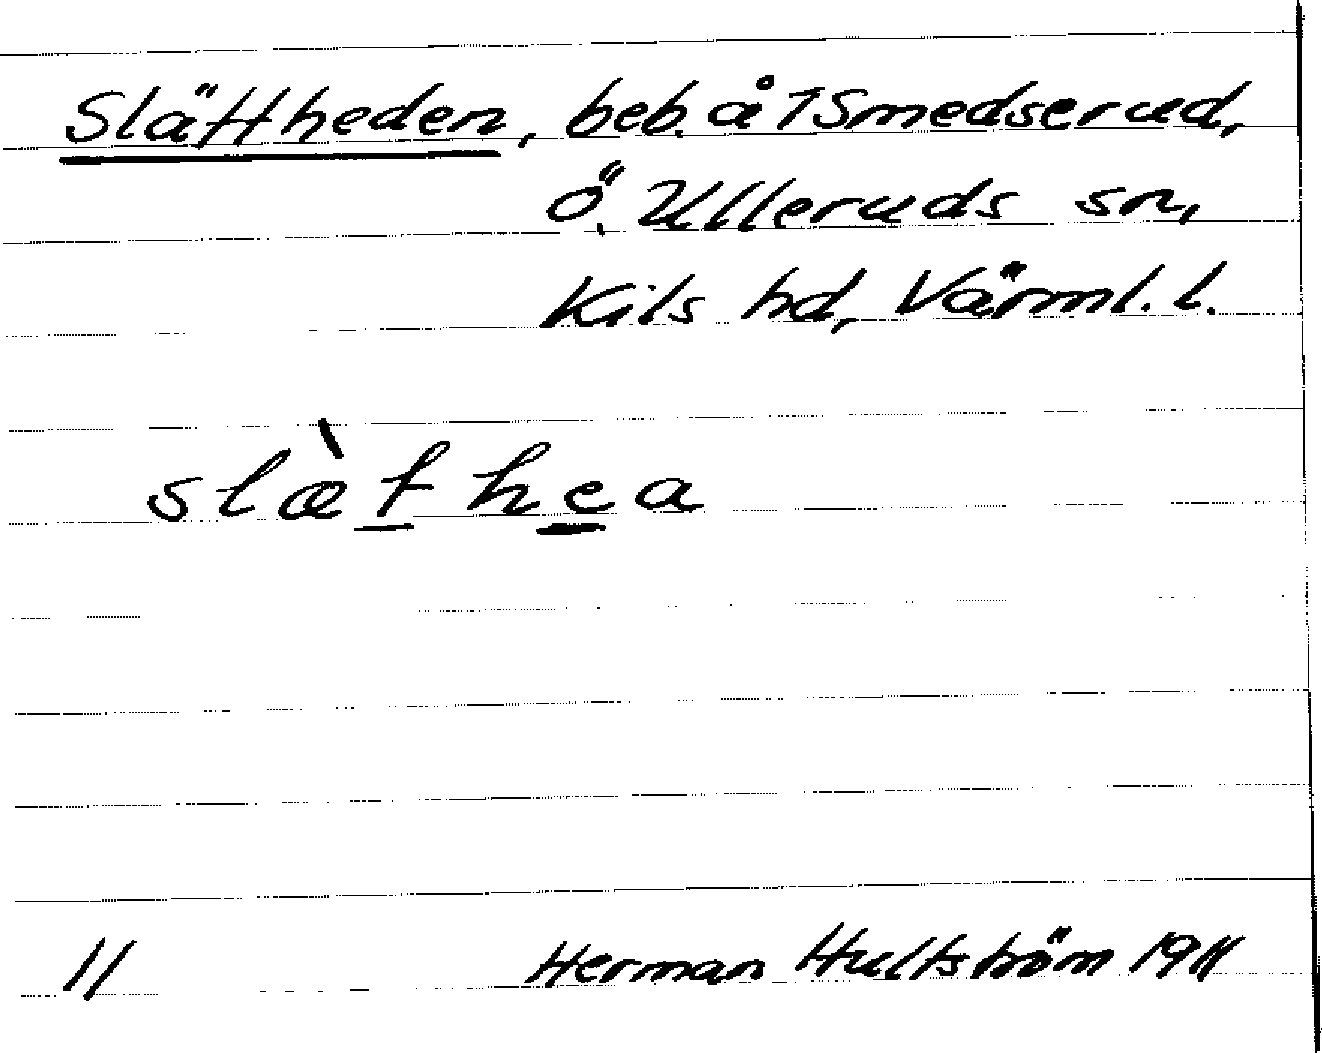 Slättheden, beb. å 1 Smedserud,
Ö. Ulleruds sn,
Kils hd, Värml. l.
slæ̀t hea
11 Herman Hultström 1911